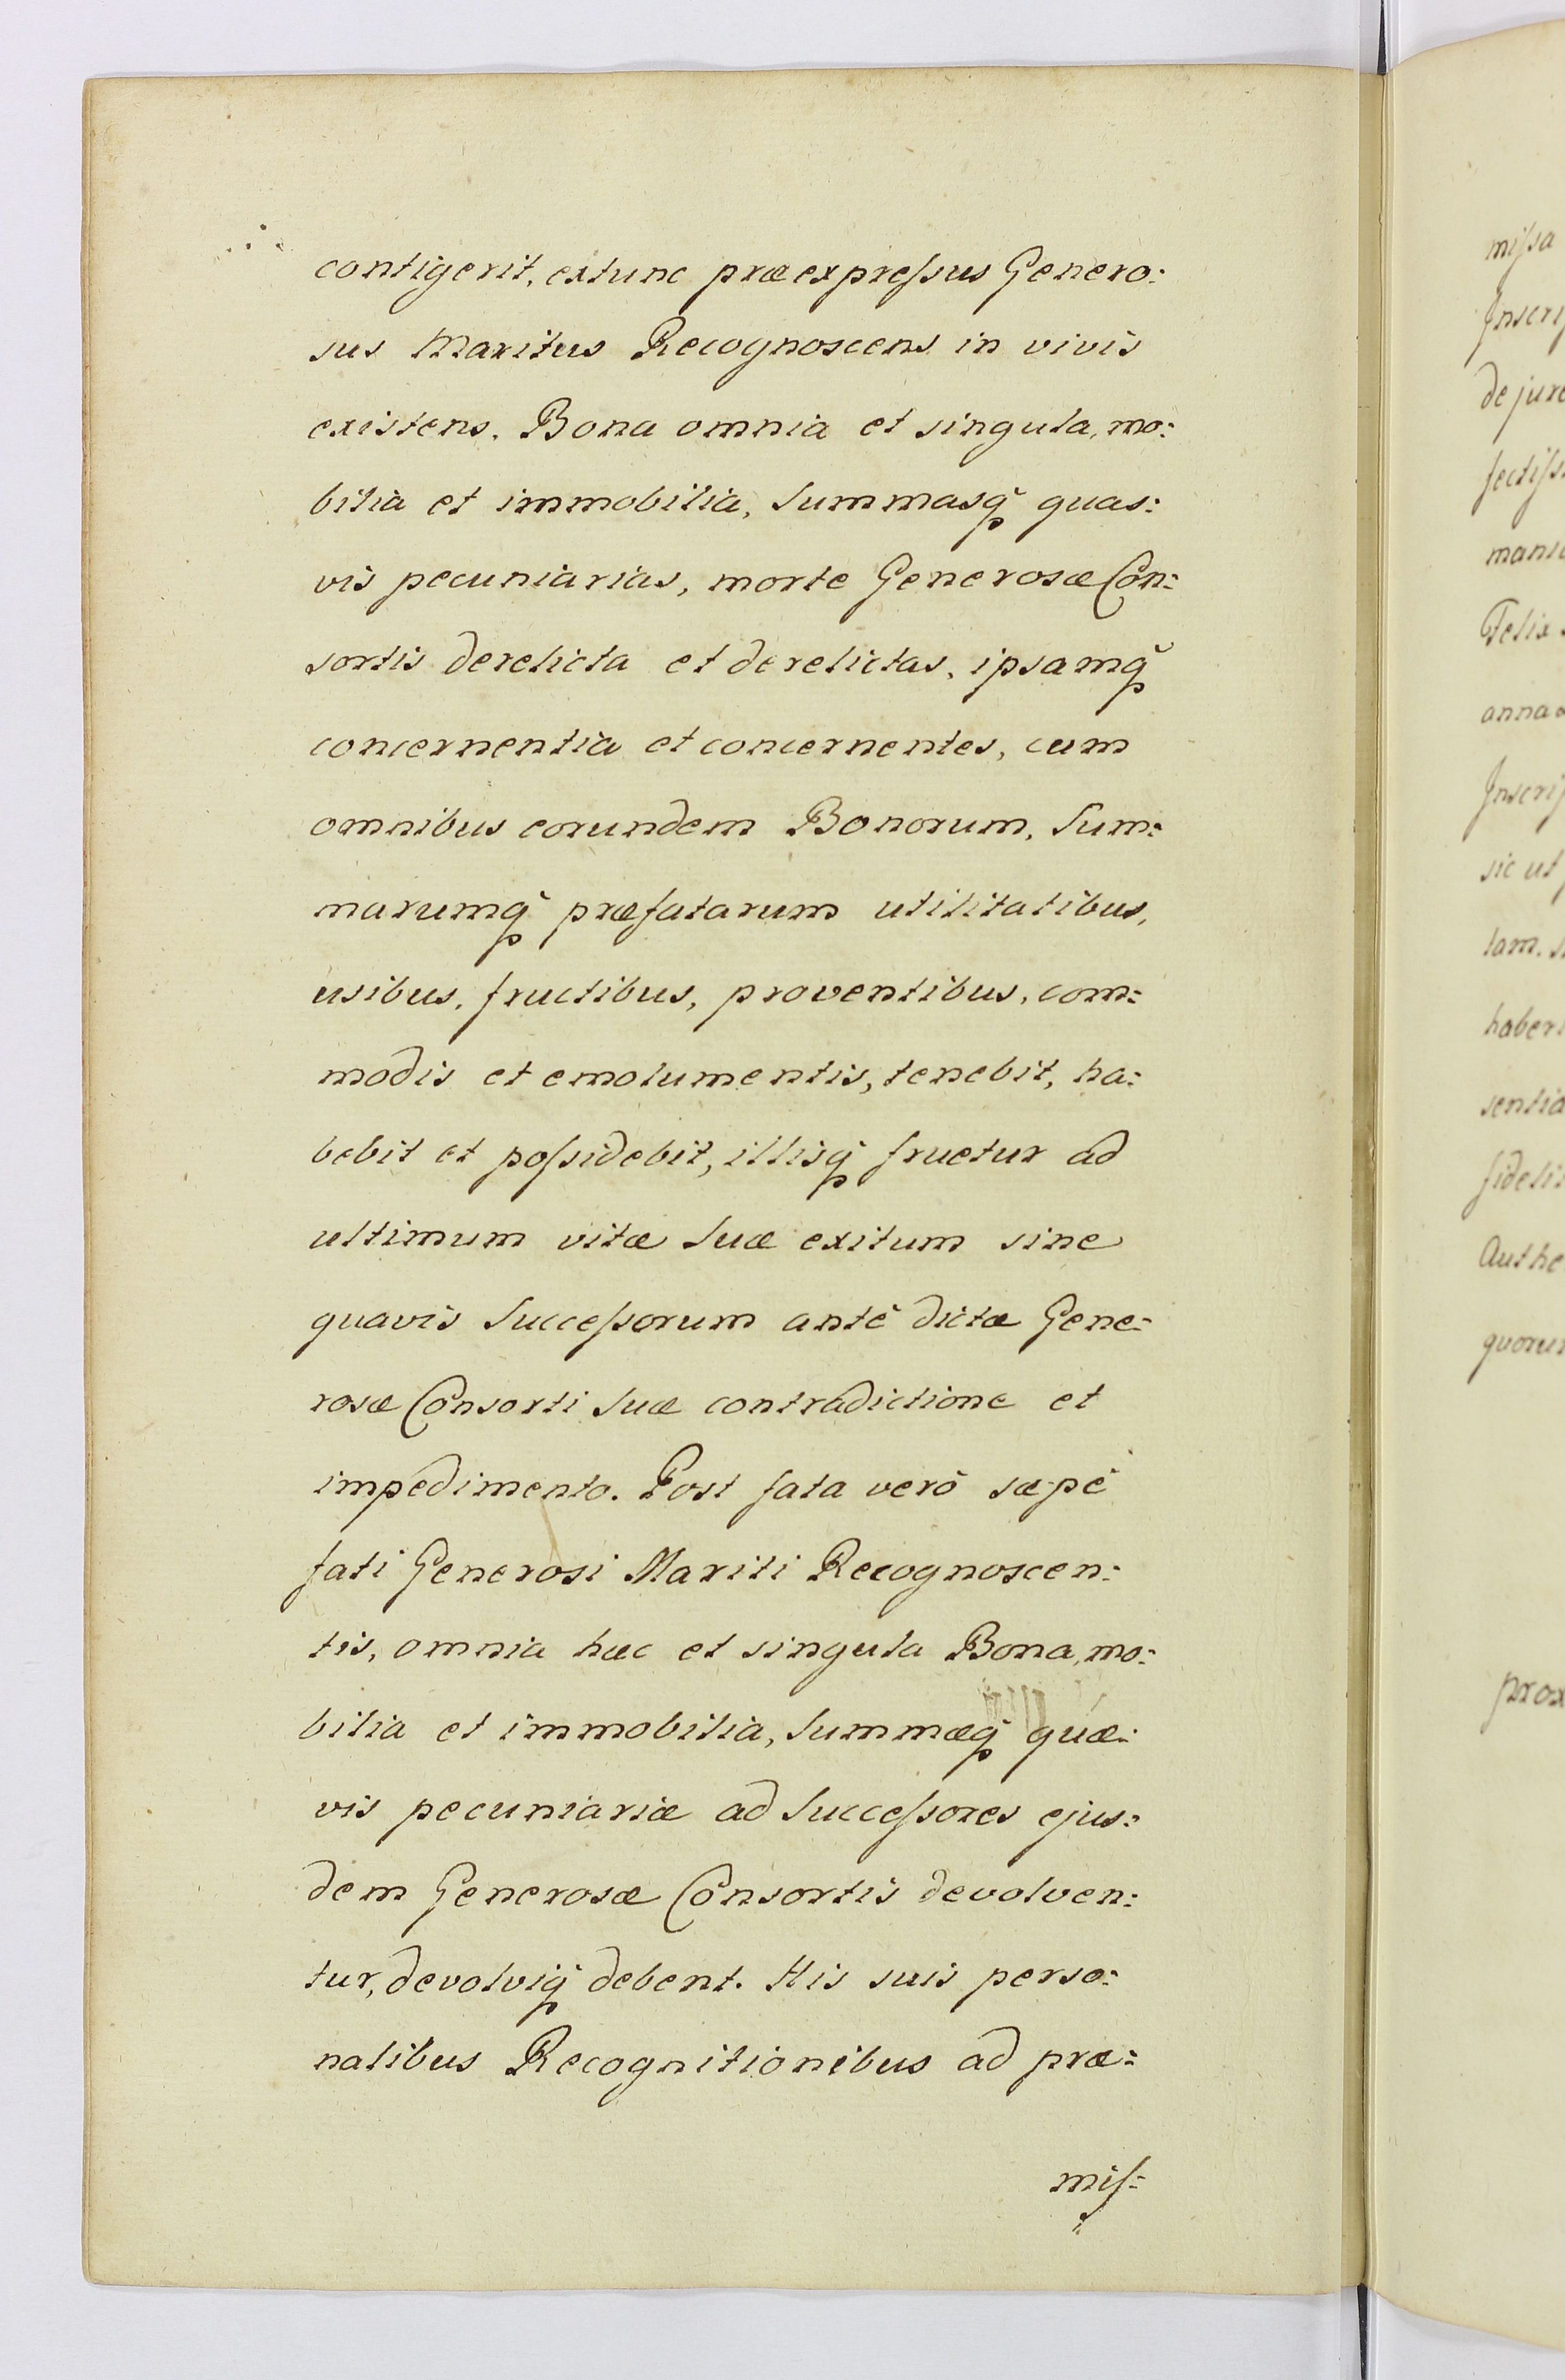 contigerit, extunc præexpreſsus Genero:
sus Maritus Recognoscens in vivis
existens, Bona omnia et singula, mo:
bilia et immobilia, Summasq̃ quas:
vis pecuniarias, morte Generosæ Con:
sortis derelicta et derelictas, ipsamq̃
concernentia et concernentes, cum
omnibus eorundem Bonorum, Sum:
marumq̃ præfatarum utilitatibus,
usibus, fructibus, proventibus, com:
modis et emolumentis, tenebit, ha:
bebit et poſsidebit, illisq̃ fruetur ad
ultimum vitæ Suæ exitum sine
quavis Succeſsorum antè dictæ Gene:
rosæ Consorti Suæ contradictione et
impedimento. Post fata verò sæpè
fati Generosi Mariti Recognoscen:
tis, omnia hæc et singula Bona, mo:
bilia et immobilia, Summæq̃ quæ:
vis pecuniariæ ad Succeſsores ejus:
dem Generosæ Consortis devolven:
tur, devolviq̃ debent. His suis perso:
nalibus Recognitionibus ad præ:
miſ:
miſsa
de jure
Felix
sic ut